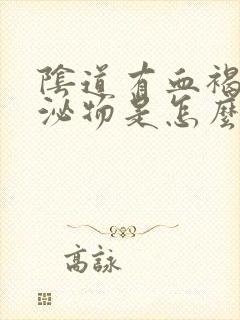 陰道有血褐
泌物是怎麼
高詠